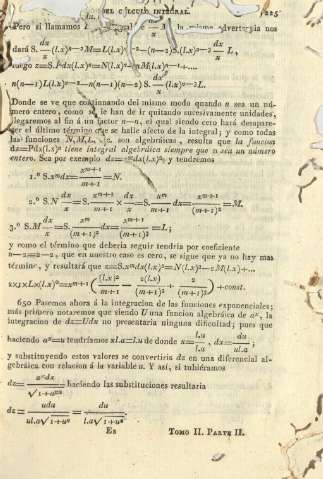 DEL CÁLCULO INTEGRAL. 225
Pero si llamamos L la misma advertencia nos
dará S. dx/x (l.x)ⁿ⁻²M=L(l.x)ⁿ⁻²-(n-2)S.(l.x)ⁿ⁻³ dx/x L,
luego z=S.Pdx(l.x)ⁿ=N(l.x)ⁿ-nM(l.x)ⁿ⁻¹+....
n(n-1)L(l.x)ⁿ⁻²-n(n-1)(n-2) S. dx/x (l.x)ⁿ⁻³L.
Donde se ve que continuando del mismo modo quando n sea un nú-
mero entero, como se le han de ir quitando sucesivamente unidades,
llegaremos al fin á un factor n-n, el qual siendo cero hará desapare-
cer el último término que se halle afecto de la integral; y como todas
las funciones N,M,L, &c. son algebráicas, resulta que la funcion
dz=Pdx(l.x)ⁿ tiene integral algebráica siempre que n sea un número
entero. Sea por exemplo dz=xᵐdx(l.x)², y tendrémos
1.º S.xᵐdx=xᵐ⁺¹/(m+1)=N.
2.º S.N dx/x=S. xᵐ⁺¹/(m+1) × dx/x=S. xᵐ/(m+1) dx=xᵐ⁺¹/(m+1)²=M.
3.º S.M dx/x=S. xᵐ/(m+1)² dx=xᵐ⁺¹/(m+1)³=L;
y como el término que debería seguir tendria por coeficiente
n-2=2-2, que en nuestro caso es cero, se sigue que ya no hay mas
término, y resultará que z=S.xᵐdx(l.x)²=N(l.x)²-2M(l.x)+...
2×1×L×(l.x)⁰=xᵐ⁺¹((l.x)²/(m+1) - 2(l.x)/(m+1)² + 2/(m+1)³)+const.
650 Pasemos ahora á la integracion de las funciones exponenciales;
mas primero notaremos que siendo U una funcion algebráica de aˣ, la
integracion de dz=Udx no presentaria ninguna dificultad; pues que
haciendo aˣ=u tendríamos xl.a=l.u de donde x=l.u/l.a, dx=du/ul.a;
y substituyendo estos valores se convertiría dz en una diferencial al-
gebráica con relacion á la variable u. Y así, si tubiéramos
dz=aˣdx/√1+aⁿˣ haciendo las substituciones resultaria
dz=udu/ul.a√1+uⁿ=du/l.a√1+uⁿ.
Es TOMO II. PARTE II.